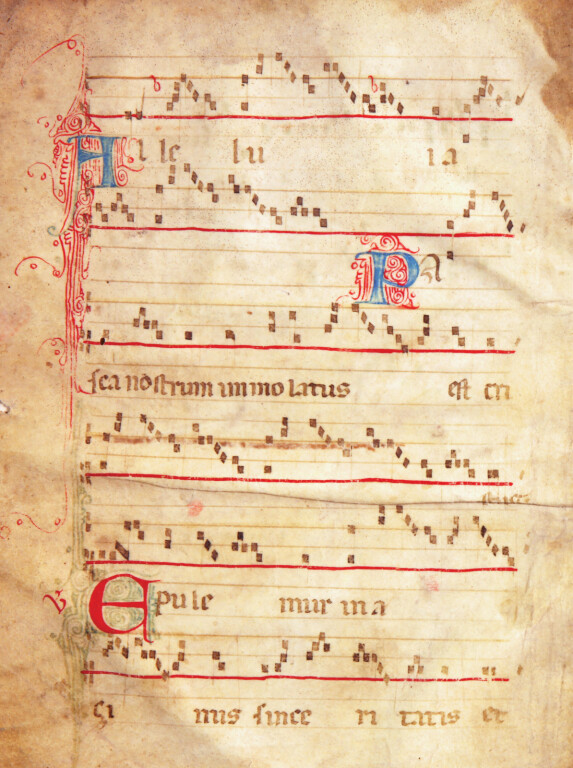 Al le lu ia
Pa
sca nostrum immolatus est cri
℣ Epule mur in a
çi mis since ri tatis et